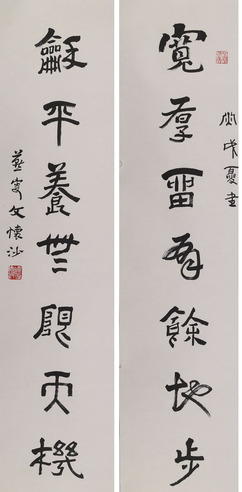 丙戌夏書
寬厚留有餘地步
龢平養無限天機
燕叟文懷沙